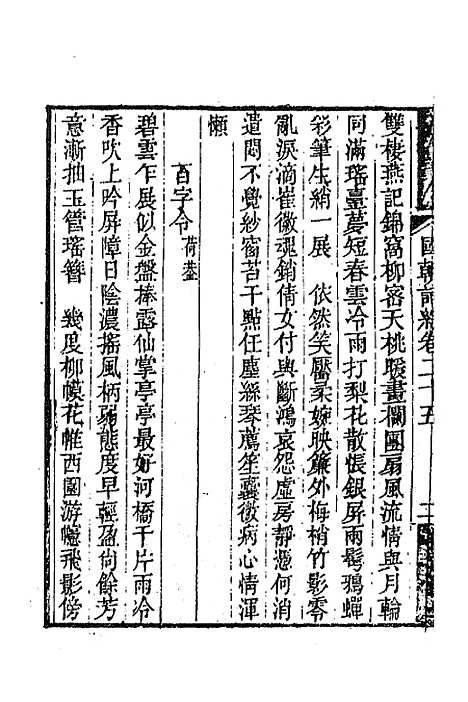 國朝詞綜卷二十五 二
雙棲燕記錦窩柳密天桃暖畫欄團扇風流情與月輪
同滿瑤臺夢短春雲冷雨打梨花散悵銀屏雨鬢鴉蟬
彩筆生綃一展 依然笑靨柔婉映簾外梅梢竹影零
亂淚滴崔徽魂銷倩女付與斷鴻哀怨虛房靜憑何消
遣悶不覺紗窗苔干點任塵絲琴薦笙囊微病心情渾
懶
百字令 荷葢
碧雲乍展似金盤捧露仙掌亭亭最好河橋千片雨冷
香吹上吟屏障日陰濃搖風柄弱態度早輕盈尙餘芳
意漸抽玉管瑤簪 幾度柳幙花帷西園游幰飛影傍